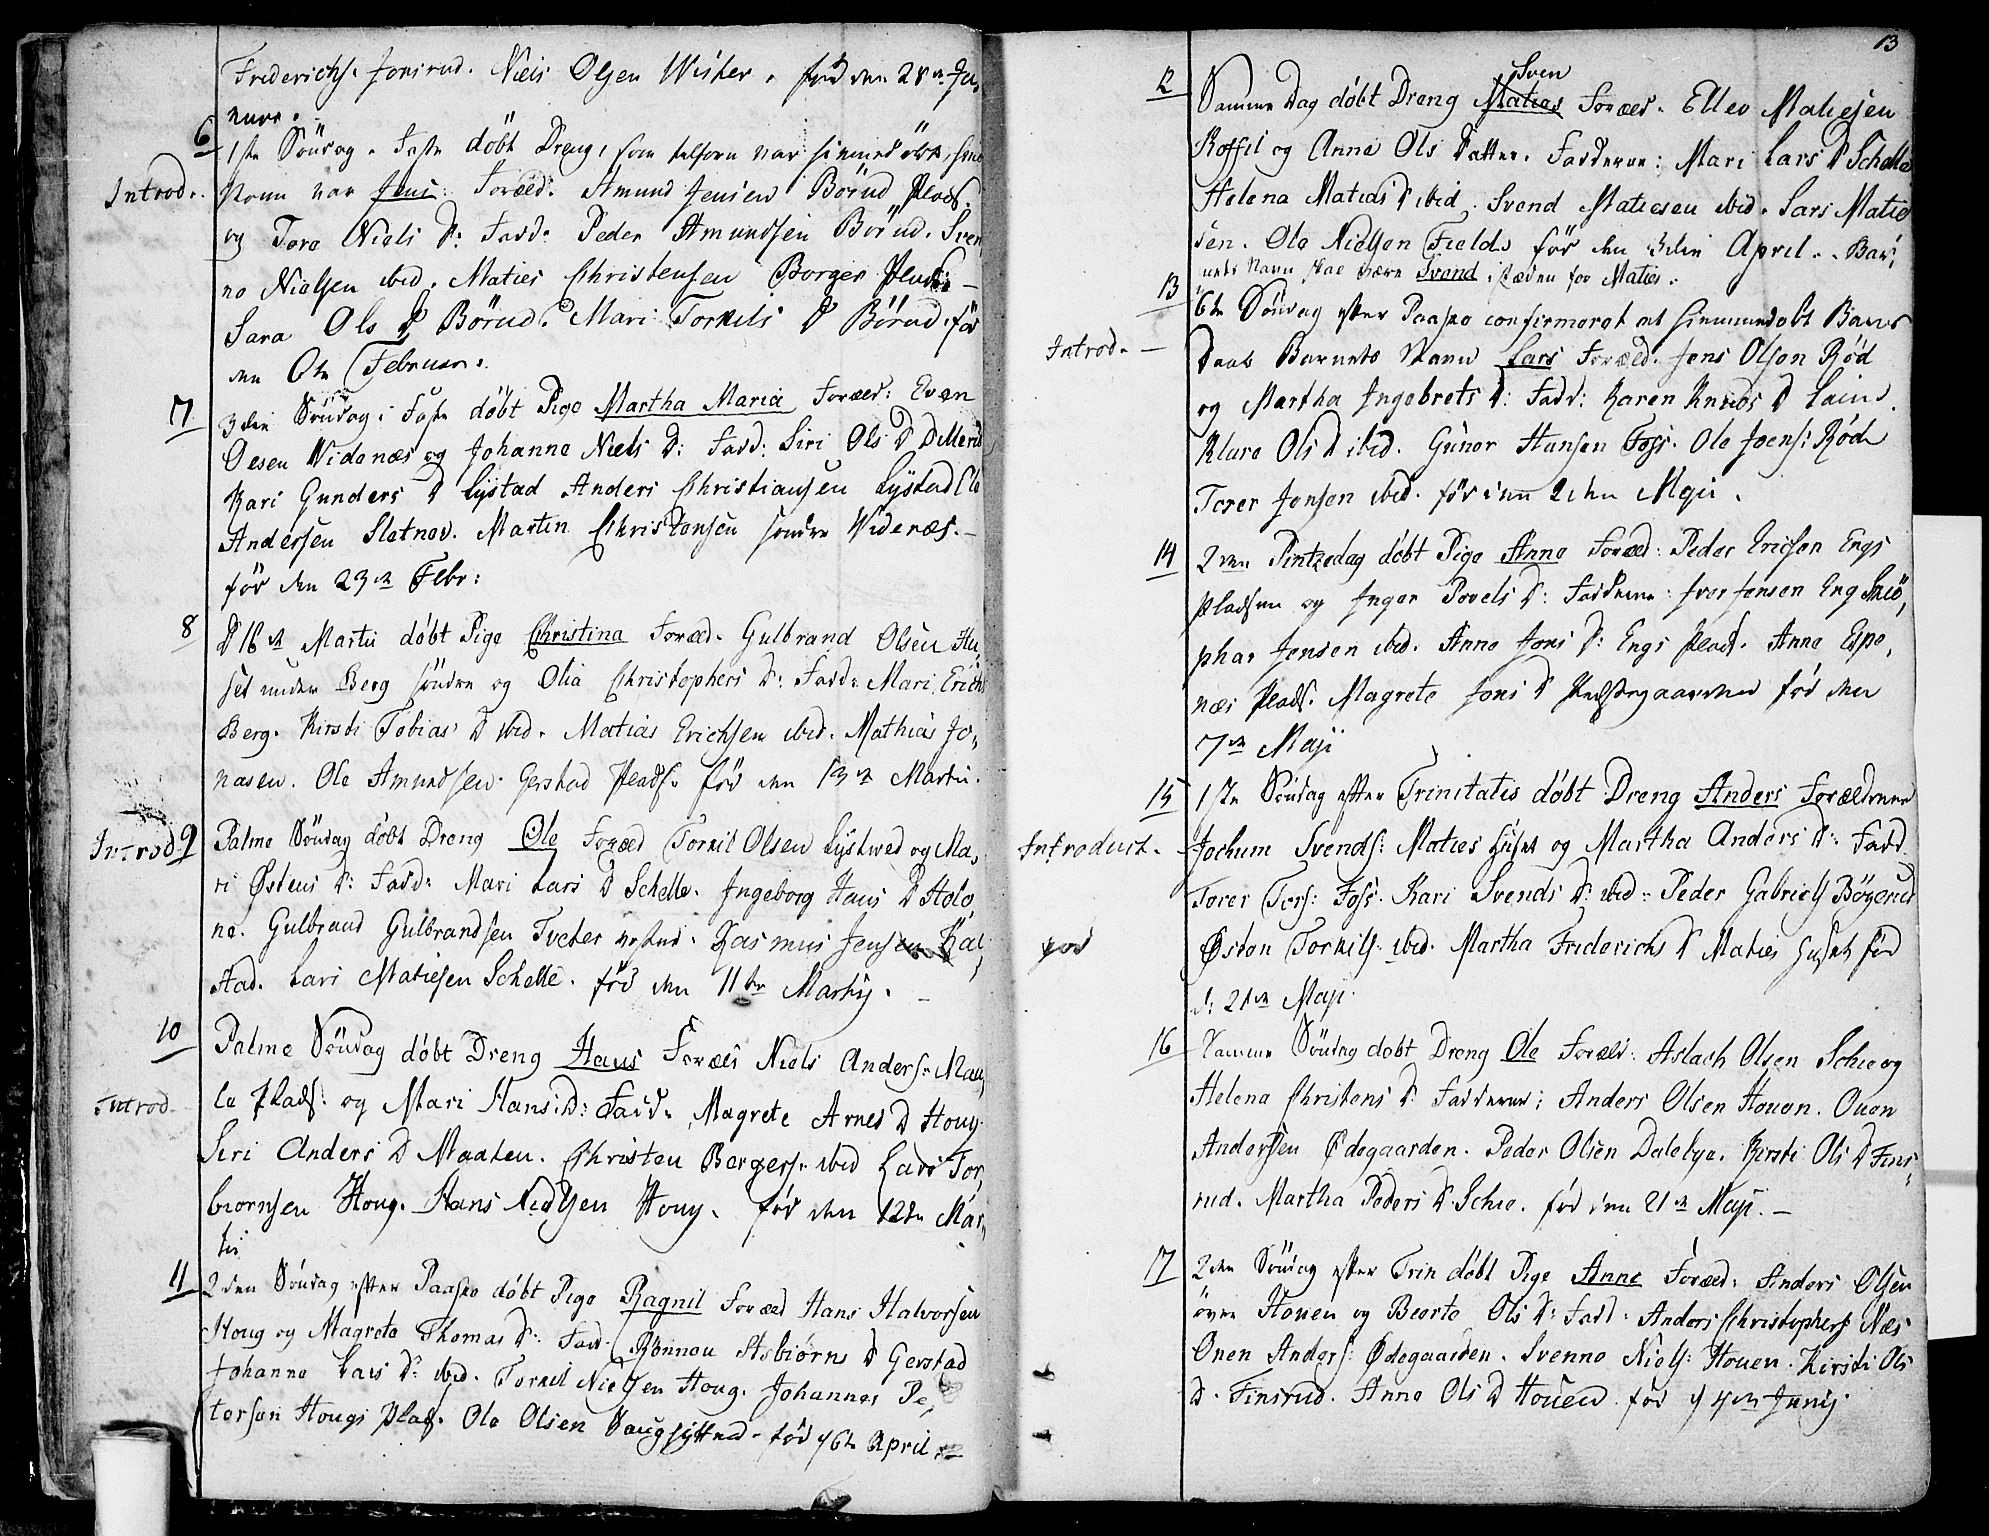 Friderichs. Jonsrud. Niels Olsen Wister. fød den 28de Ja„
nuar.
6
1ste Søndag i Faste døbt Dreng, som tilforn var hiemedøbt, hvis
Introd.
Navn var Jens. Foræld. Amund Jensen Börud Plads.
og Tore Niels D: Fadd: Peder Amundsen Börud. Sven„
no Nielsen ibid. Maties Christensen Borger Plads. –
Sara Ols D Börud. Mari Torkils D Börud. fød
den 6te Februar.
7
3die Søndag i Faste døbt Pige Martha Maria Foræld: Even
Oesen Widenæs og Johanne Niels D: Fadd: Siri Ols D Dillerud
Kari Gunders D Lystad Anders Christiansen Lystad Ole
Andersen Sletnov. Martin Christensen søndre Widenæs. –
fød den 23de Febr:
8
D 16de Martii døbt Pige Christina Foræld. Gulbrand Olsen Hu„
set under Berg søndre og Olia Christophers D: Fadd: Mari Erichs
Berg. Kirsti Tobias D ibid. Matias Erichsen ibid. Mathias Jo„
nasen. Ole Amundsen Gerstad Plads. fød den 13de Martii.
Introd. 9
Palme Søndag døbt Dreng Ole Foræld Torkil Olsen Lystwed og Ma„
ri Østens D: Fadd: Mari Lars D Schelle. Ingeborg Hans D Holo
ne. Gulbrand Gulbrandsen Tveter vestre. Rasmus Jensen Kal„
stad. Lars Matiesen Schelle. fød den 11te Martij. –
10
Palme Søndag døbt Dreng Hans Foræld Niels Anders. Maa„
Introd.
le Plads. og Mari Hans D: Fadd: Magrete Arnes D Houg
Siri Anders D Maaten. Christen Bergers. ibid Lars Tor„
biornsen Houg. Hans Nielsen Houg. fød den 12te Mar„
tii
11
2den Søndag efter Paaske døbt Pige Ragnil Foræld Hans Halvorsen
Houg og Magrete Thomas D: Fadd. Rønnou Asbiørns D Gerstad
Johanne Lars D: ibid. Torkil Nielsen Houg. Johannes Pe„
tersen Hougs Plads. Ole Olsen Haugsytten. fød d 6te April. –
13
12
Sven
Samme Dag døbt Dreng Maties Foræld. Ellev Matiesen
Koffil og Anne Ols Datter. Fadderne: Mari Lars D Schelle
Helena Matias D ibid. Svend Matiesen ibid. Lars Matie
sen. Ole Nielsen Fields fød den 3die April. Bar„
nets Navn skal være Svend, i steden for Maties.
13
6te Søndag efter Paaske confirmeret et hiemmedøbt Barns
Introd. –
Daab Barnets Navn Lars Foræld. Jens Olsen Rød
og Martha Ingebrets D: Fadd: Karen Knuds D Lain.
Klare Ols D ibid. Gunor Hansen Foss. Ole Joens: Røde
Torer Jonsen ibid. fød den 2den Maji.
14
2den Pintzedag døbt Pige Anne Foræld: Peder Ericsen Engs
Pladsen og Inger Povels D: Fadderne: Iver Jensen Eng Skiö„
phar Jensen ibid. Anne Jons D: Engs Plads. Anne Espe„
næs Plads. Magrete Jons D Præstegaarden fød den
7de Maji
15
1ste Søndag efter Trinitatis døbt Dreng Anders Forældrene
Introduct. –
Jochum Svends: Maties Huset og Martha Anders D: Fadd
Torer Tors: Foss. Kari Svends D: ibid. Peder Gabriels Bøgerud
Østen Torkils. ibid. Martha Friderichs D Maties Huset fød
d: 21de Maji.
16
Samme Søndag døbt Dreng Ole Foræld: Aslach Olsen Schie og
Helena Christens D Fadderne: Anders Olsen Houen. Ouen
Andersen Ødegaarden. Peder Olsen Dalebye. Kirsti Ols D Fins„
rud. Martha Peders D Schie. fød den 21de Maji. –
17
2den Søndag efter Trin døbt Pige Anne Foræld: Anders Olsen
övre Houen og Beorte Ols D: Fadd: Anders Christophers Næs
Onen Anders: Ødegaarden. Svenno Niels: Houen. Kirsti Ols
D. Finsrud. Anne Ols D Houen. fød d 4de Junij.